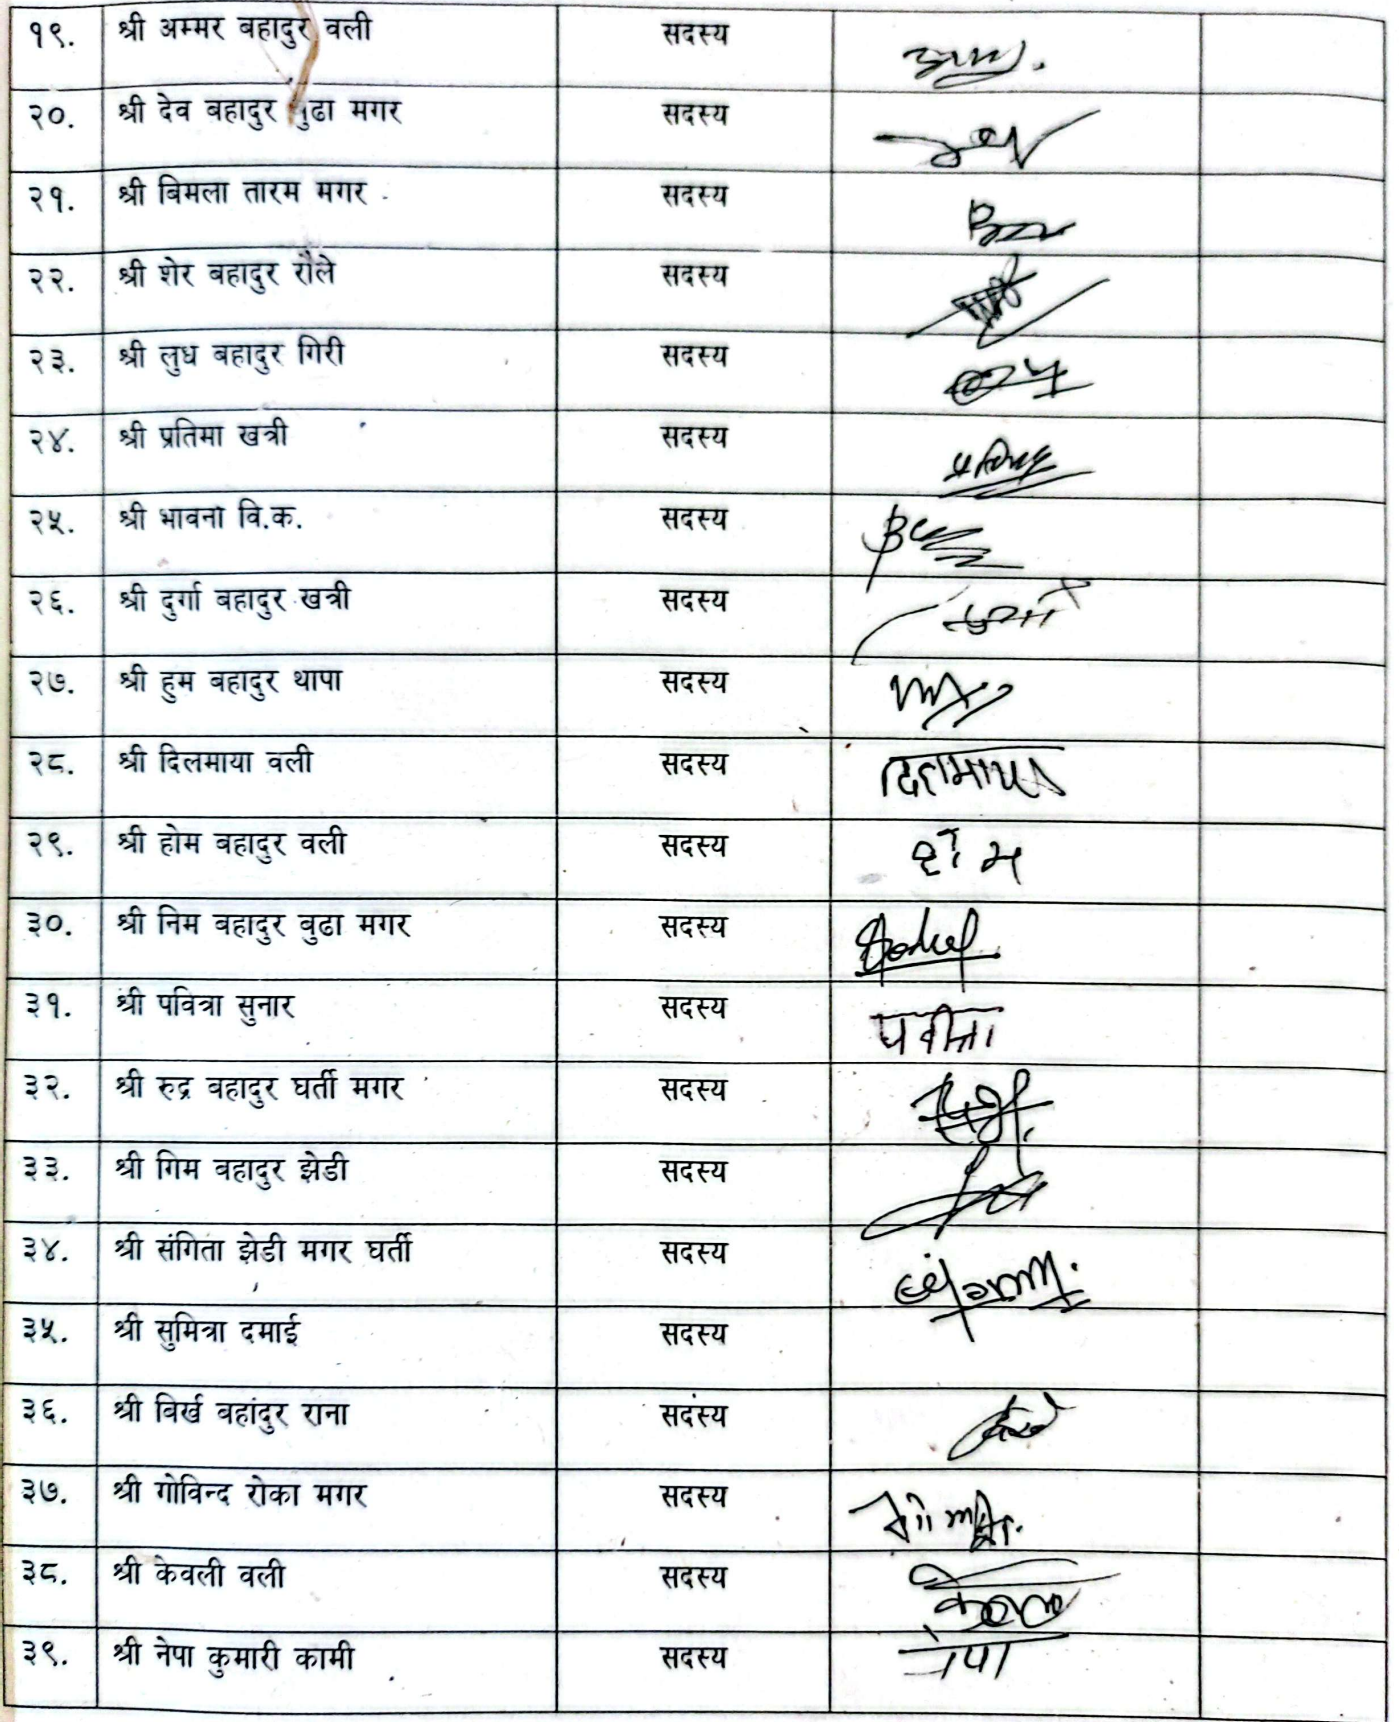 १९. श्री अम्मर बहादुर वली सदस्य
२०. श्री देव बहादुर बुढा मगर सदस्य
२१. श्री बिमला तारम मगर सदस्य
२२. श्री शेर बहादुर रौले सदस्य
२३. श्री लुध बहादुर गिरी सदस्य
२४. श्री प्रतिमा खत्री सदस्य
२५. श्री भावना वि.क. सदस्य
२६. श्री दुर्गा बहादुर खत्री सदस्य
२७. श्री हुम बहादुर थापा सदस्य
२८. श्री दिलमाया वली सदस्य दिलमाया
२९. श्री होम बहादुर वली सदस्य होम
३०. श्री निम बहादुर बुढा मगर सदस्य
३१. श्री पवित्रा सुनार सदस्य पवीत्रा
३२. श्री रुद्र बहादुर घर्ती मगर सदस्य
३३. श्री गिम बहादुर झेडी सदस्य
३४. श्री संगिता झेडी मगर घर्ती सदस्य
३५. श्री सुमित्रा दमाई सदस्य
३६. श्री विर्ख बहादुर राना सदस्य
३७. श्री गोविन्द रोका मगर सदस्य
३८. श्री केवली वली सदस्य
३९. श्री नेपा कुमारी कामी सदस्य नेपा